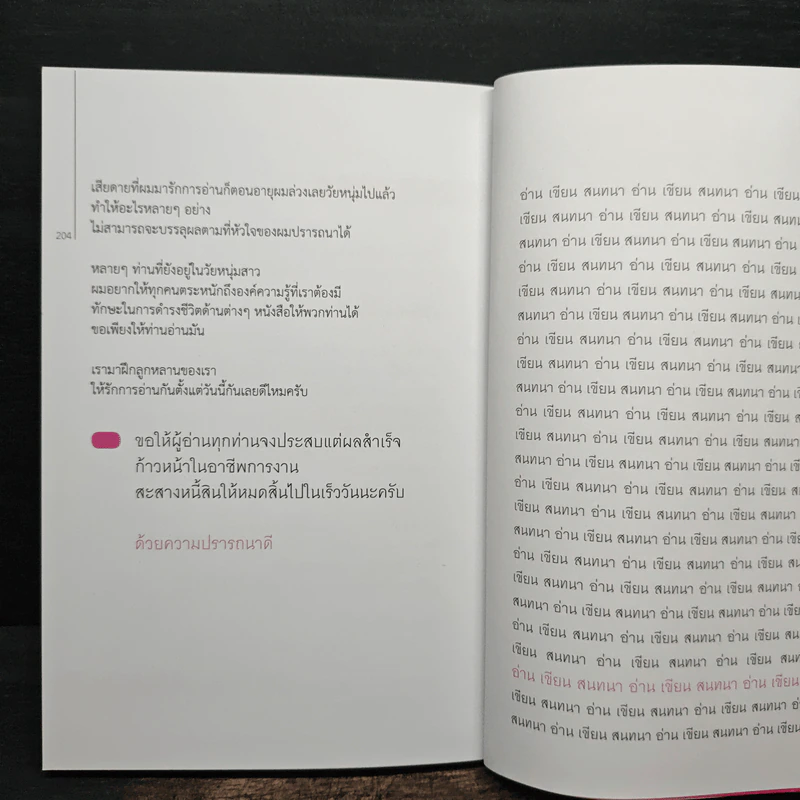 เสียดายที่ผมมารักการอ่านก็ตอนอายุผมล่วงเลยวัยหนุ่มไปแล้ว
ทำให้อะไรหลายๆ อย่าง
ไม่สามารถจะบรรลุผลตามที่หัวใจของผมปรารถนาได้
204
หลายๆ ท่านที่ยังอยู่ในวัยหนุ่มสาว
ผมอยากให้ทุกคนตระหนักถึงองค์ความรู้ที่เราต้องมี
ทักษะในการดำรงชีวิตด้านต่างๆ หนังสือให้พวกท่านได้
ขอเพียงให้ท่านอ่านมัน
เรามาฝึกลูกหลานของเรา
ให้รักการอ่านกันตั้งแต่วันนี้กันเลยดีไหมครับ
ขอให้ผู้อ่านทุกท่านจงประสบแต่ผลสำเร็จ
ก้าวหน้าในอาชีพการงาน
สะสางหนี้สินให้หมดสิ้นไปในเร็ววันนะครับ
ด้วยความปรารถนาดี
อ่าน เขียน สนทนา อ่าน เขียน สนทนา อ่าน เขียน
เขียน สนทนา อ่าน เขียน สนทนา อ่าน เขียน สนทนา
สนทนา อ่าน เขียน สนทนา อ่าน เขียน สนทนา อ่าน
อ่าน เขียน สนทนา อ่าน เขียน สนทนา อ่าน เขียน
เขียน สนทนา อ่าน เขียน สนทนา อ่าน เขียน สนทนา
สนทนา อ่าน เขียน สนทนา อ่าน เขียน สนทนา อ่าน
อ่าน เขียน สนทนา อ่าน เขียน สนทนา อ่าน เขียน
เขียน สนทนา อ่าน เขียน สนทนา อ่าน เขียน สนทนา
สนทนา อ่าน เขียน สนทนา อ่าน เขียน สนทนา อ่าน เขียน
อ่าน เขียน สนทนา อ่าน เขียน สนทนา อ่าน เขียน
เขียน สนทนา อ่าน เขียน สนทนา อ่าน เขียน สนทนา
สนทนา อ่าน เขียน สนทนา อ่าน เขียน สนทนา อ่าน เขียน
อ่าน เขียน สนทนา อ่าน เขียน สนทนา อ่าน เขียน
เขียน สนทนา อ่าน เขียน สนทนา อ่าน เขียน สนทนา
สนทนา อ่าน เขียน สนทนา อ่าน เขียน สนทนา อ่าน เขียน
อ่าน เขียน สนทนา อ่าน เขียน สนทนา อ่าน เขียน
เขียน สนทนา อ่าน เขียน สนทนา อ่าน เขียน สนทนา
สนทนา อ่าน เขียน สนทนา อ่าน เขียน สนทนา อ่าน เขียน
อ่าน เขียน สนทนา อ่าน เขียน สนทนา อ่าน เขียน
เขียน สนทนา อ่าน เขียน สนทนา อ่าน เขียน
อ่าน เขียน สนทนา อ่าน เขียน สนทนา อ่าน เขียน
เขียน สนทนา อ่าน เขียน สนทนา อ่าน เขียน สนทนา
สนทนา อ่าน เขียน สนทนา อ่าน เขียน สนทนา อ่าน เขียน